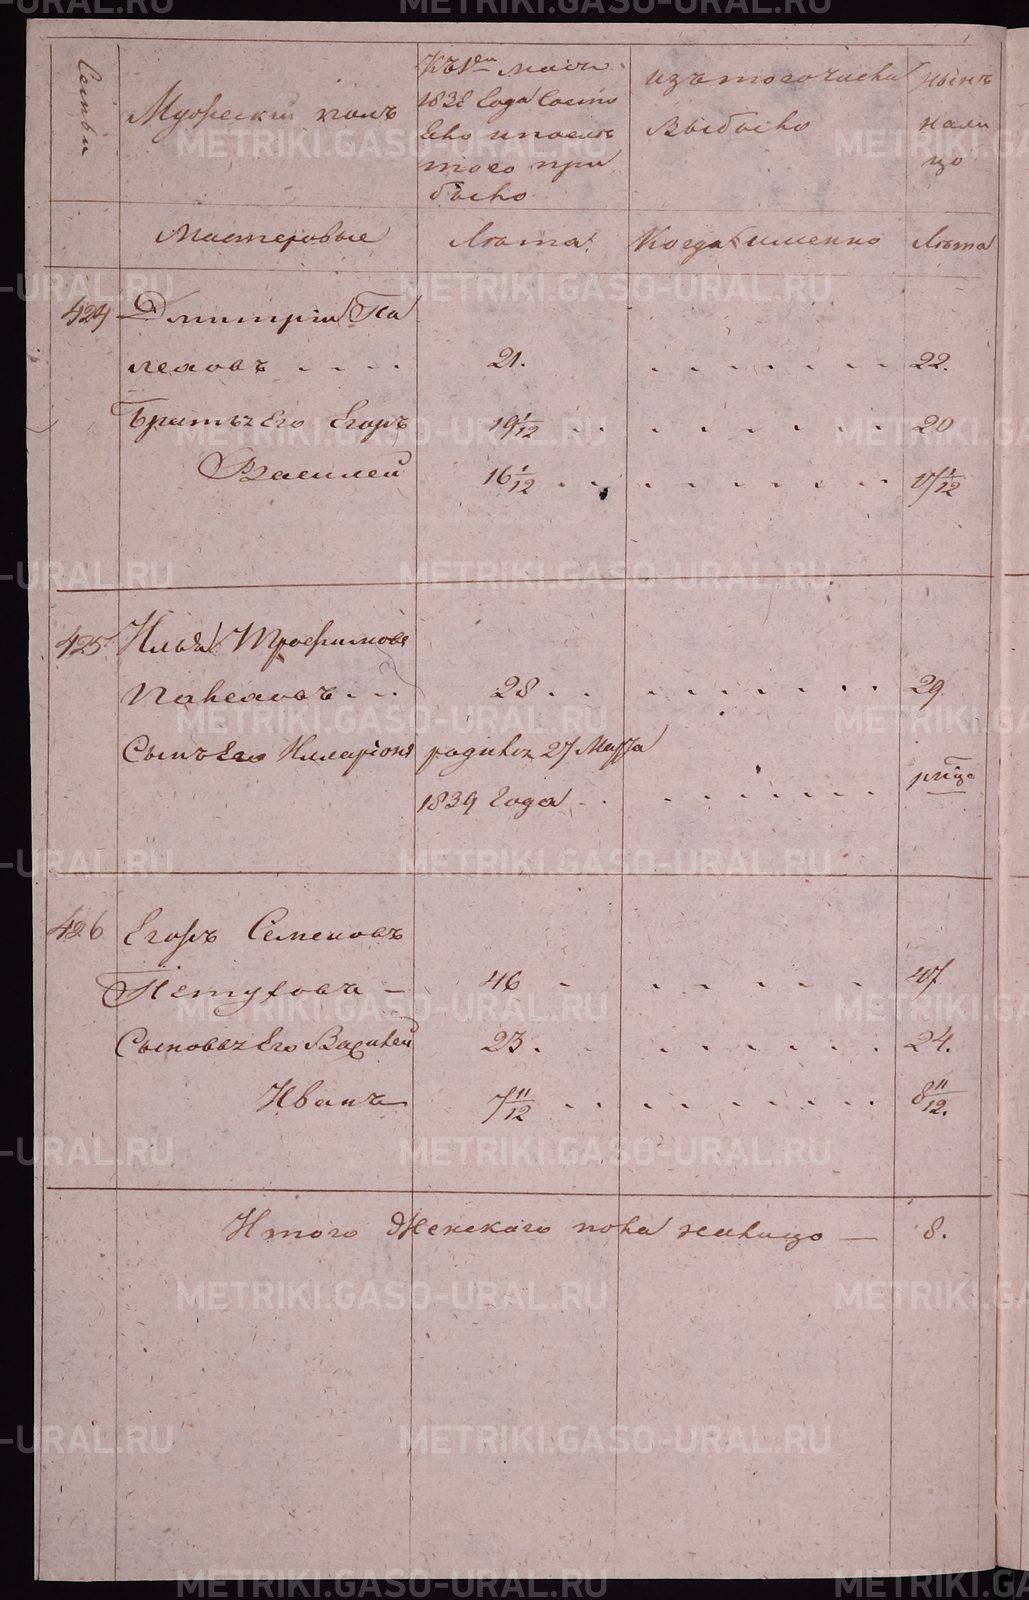 Семьи
Мужеский полъ
Къ 1ему мая
1838 года состо
яло и после
того при
было
изъ того числа
выбыло
нынѣ
нали
цо
Мастеровые
Лѣта
Когда именно
Лѣта
424 Дмитрій Па
леховъ . . . . 21. . . . . . . . 22.
Братья Его Егоръ 19 1/12 . . . . . . . . 20
Василей 16 1/12 . . . . . . . . 17 1/12
425 Илья Трофимовъ
Палеховъ . . . 28 . . . . . . . . 29
Сынъ Его Иларіонъ родился 27 Марта
1839 года . . . . . . . .
426 Егоръ Семеновъ
Петуховъ — 46 . . . . . . . 47
Сыновья Его Василей 23. . . . . . . . 24.
Иванъ 7 11/12 . . . . . . . . 8 11/12.
Итого Женскаго пола налицо — 8.
METRIKI.GASO-URAL.RU